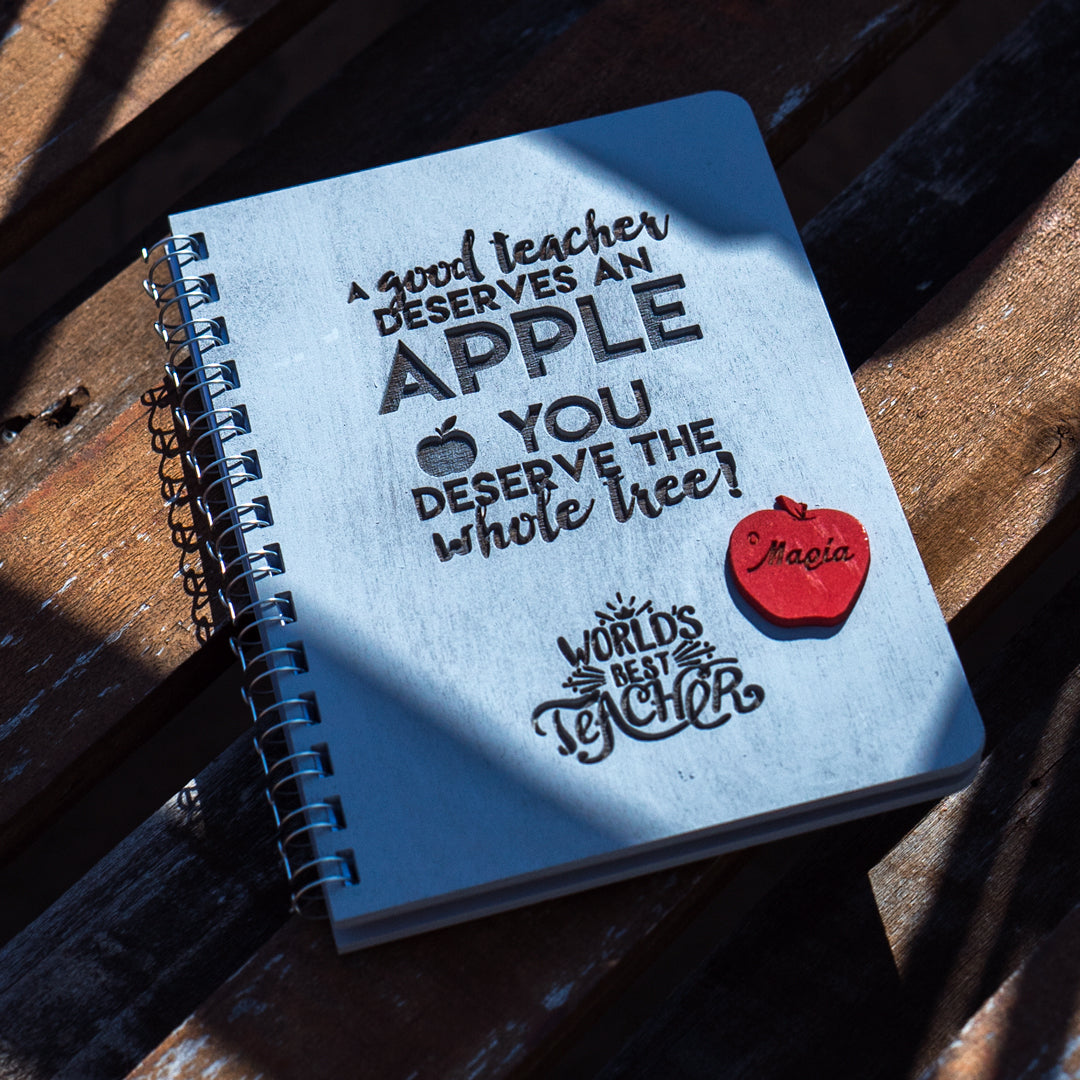 A good teacher
DESERVES AN
APPLE
YOU
DESERVE THE
whole tree!
Magia
WORLD'S
BEST
TEACHER